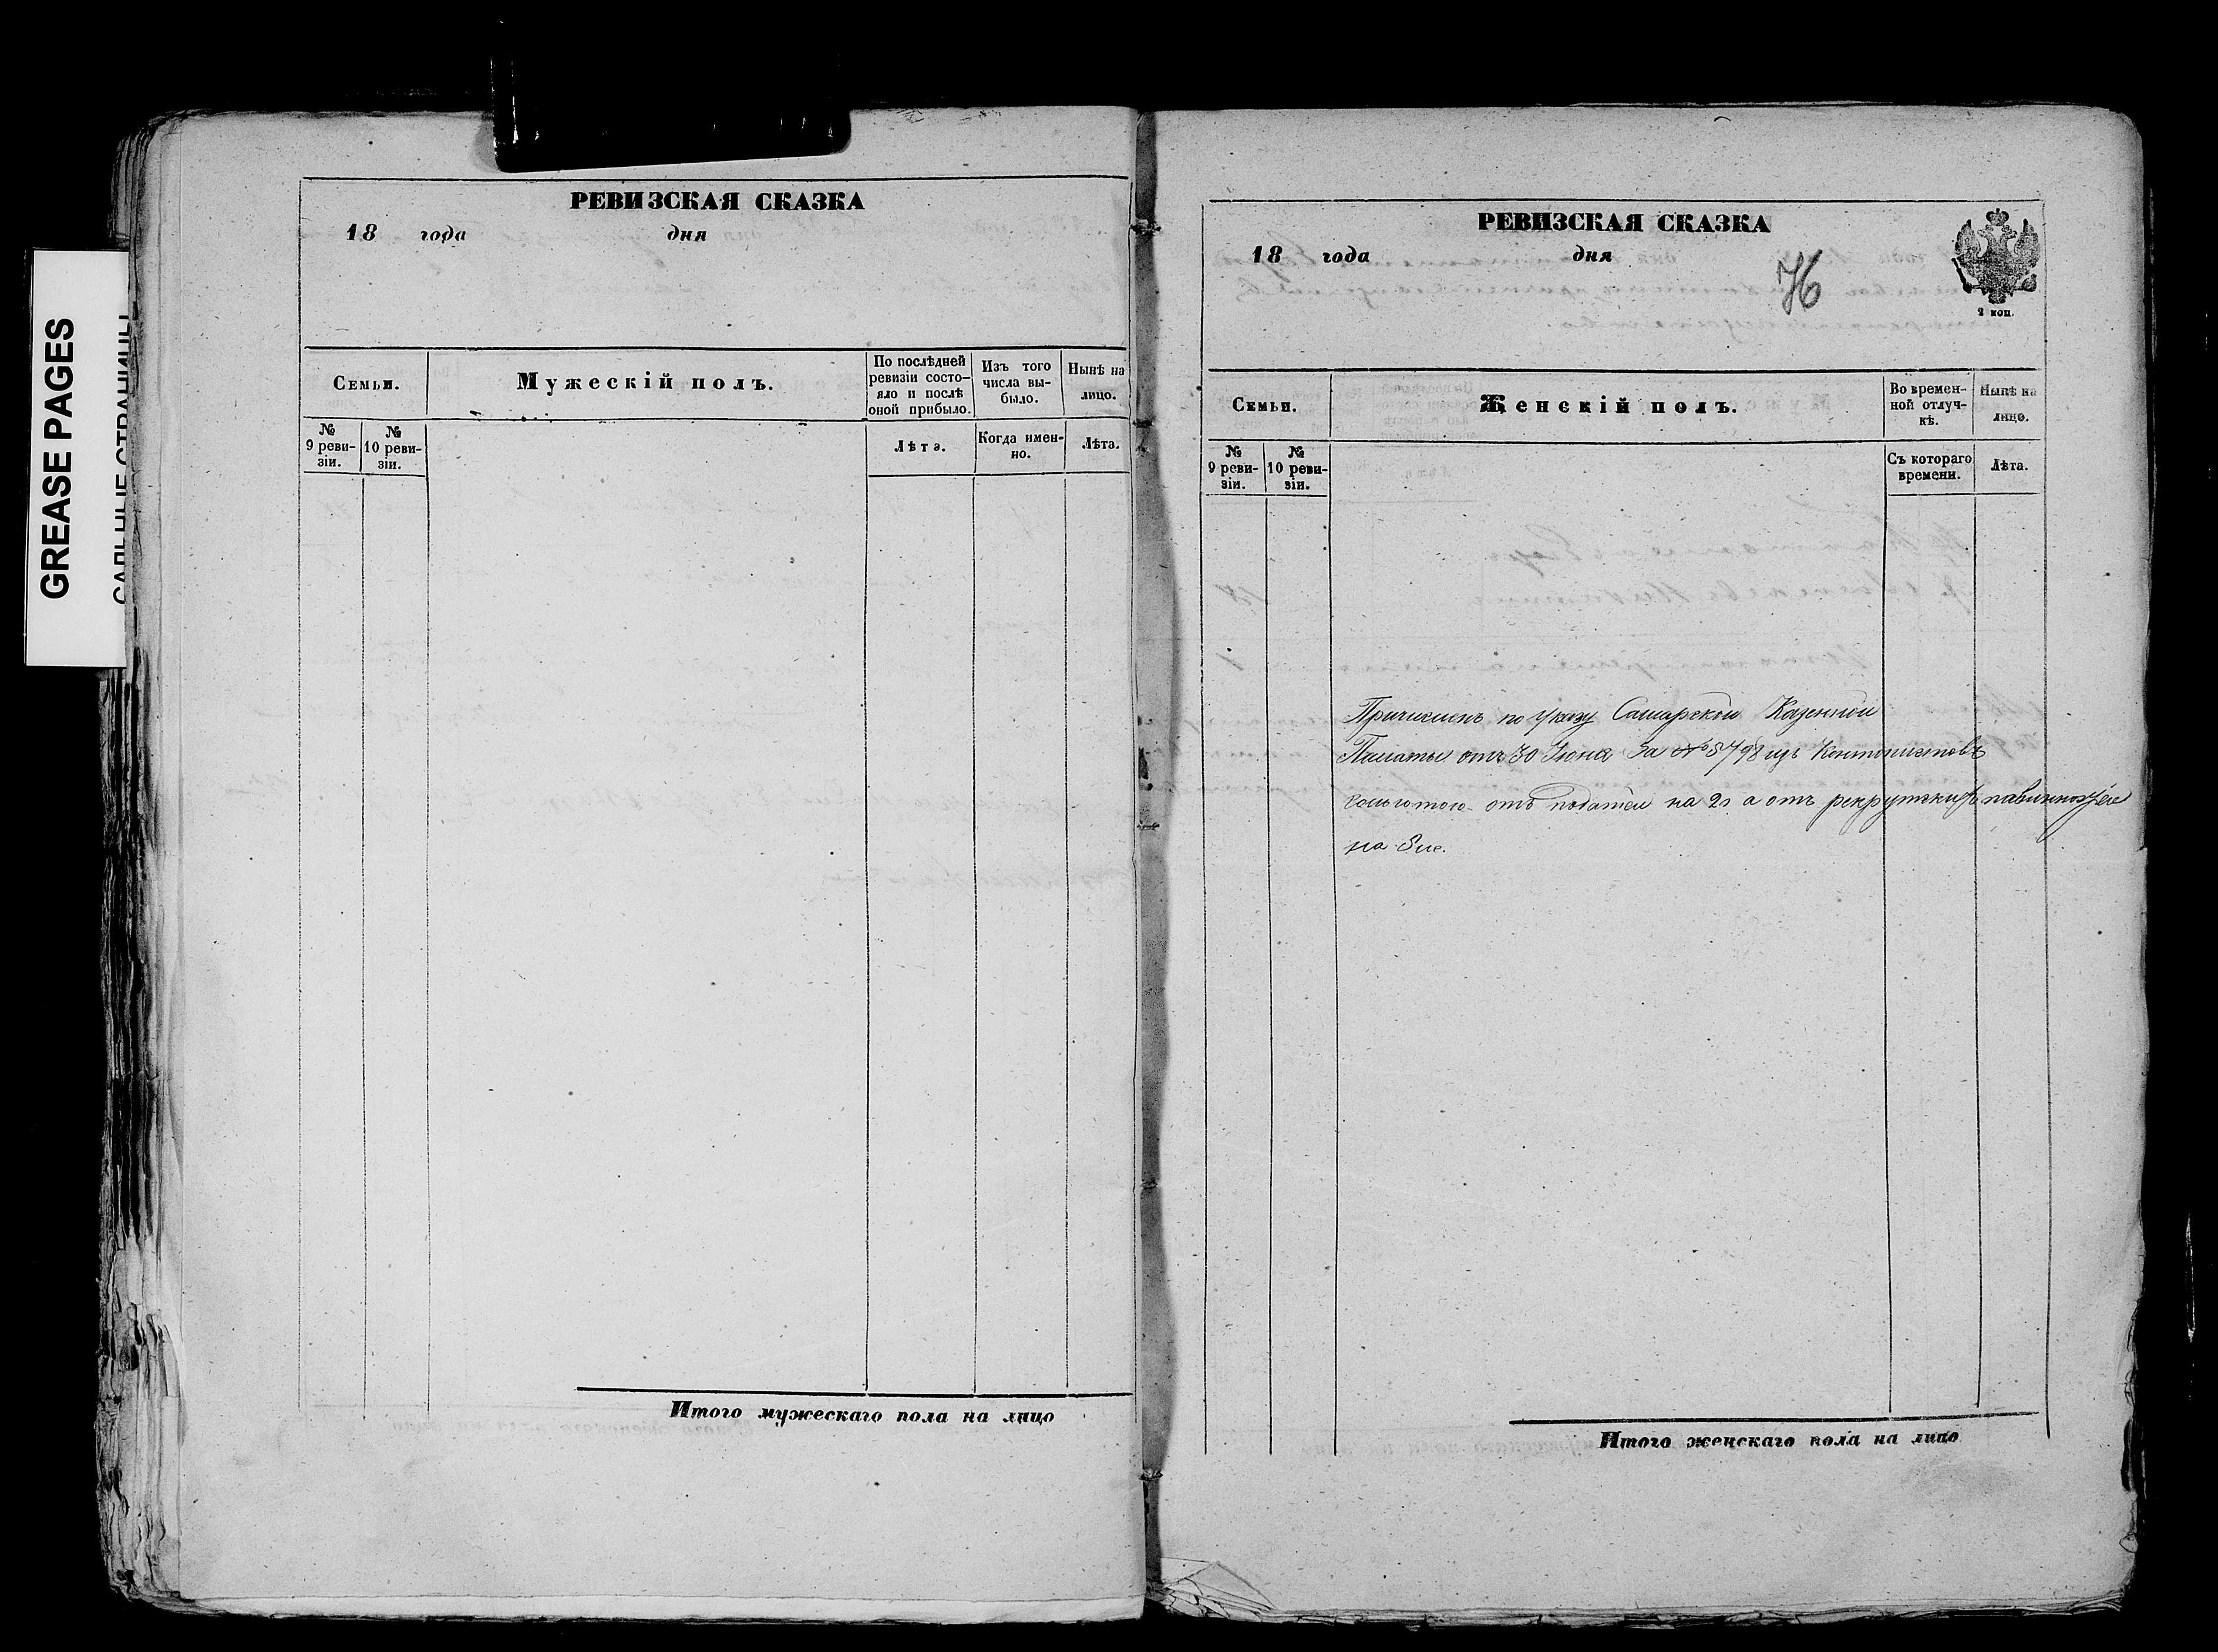 GREASE PAGES
РЕВИЗСКАЯ СКАЗКА
18 года дня
Семьи.
Мужескій полъ.
По послѣдней
ревизіи состо-
яло и послѣ
оной прибыло.
Изъ того
числа вы-
было.
Нынѣ на
лицо.
№
9 реви-
зіи.
№
10 реви-
зіи.
Лѣта.
Когда имен-
но.
Лѣта.
Итого мужескаго пола на лицо
РЕВИЗСКАЯ СКАЗКА
18 года дня
2 коп.
Семьи.
Женскій полъ.
Во времен-
ной отлуч-
кѣ.
Нынѣ на
лицо.
№
9 реви-
зіи.
№
10 реви-
зіи.
Съ котораго
времени.
Лѣта.
Причисленъ по указу Самарской Казенной
Палаты отъ 30 Іюня За № 8798 изъ Кантонистовъ
сольготою отъ податей на 2 а отъ рекрутскихъ
на
Итого женскаго пола на лицо